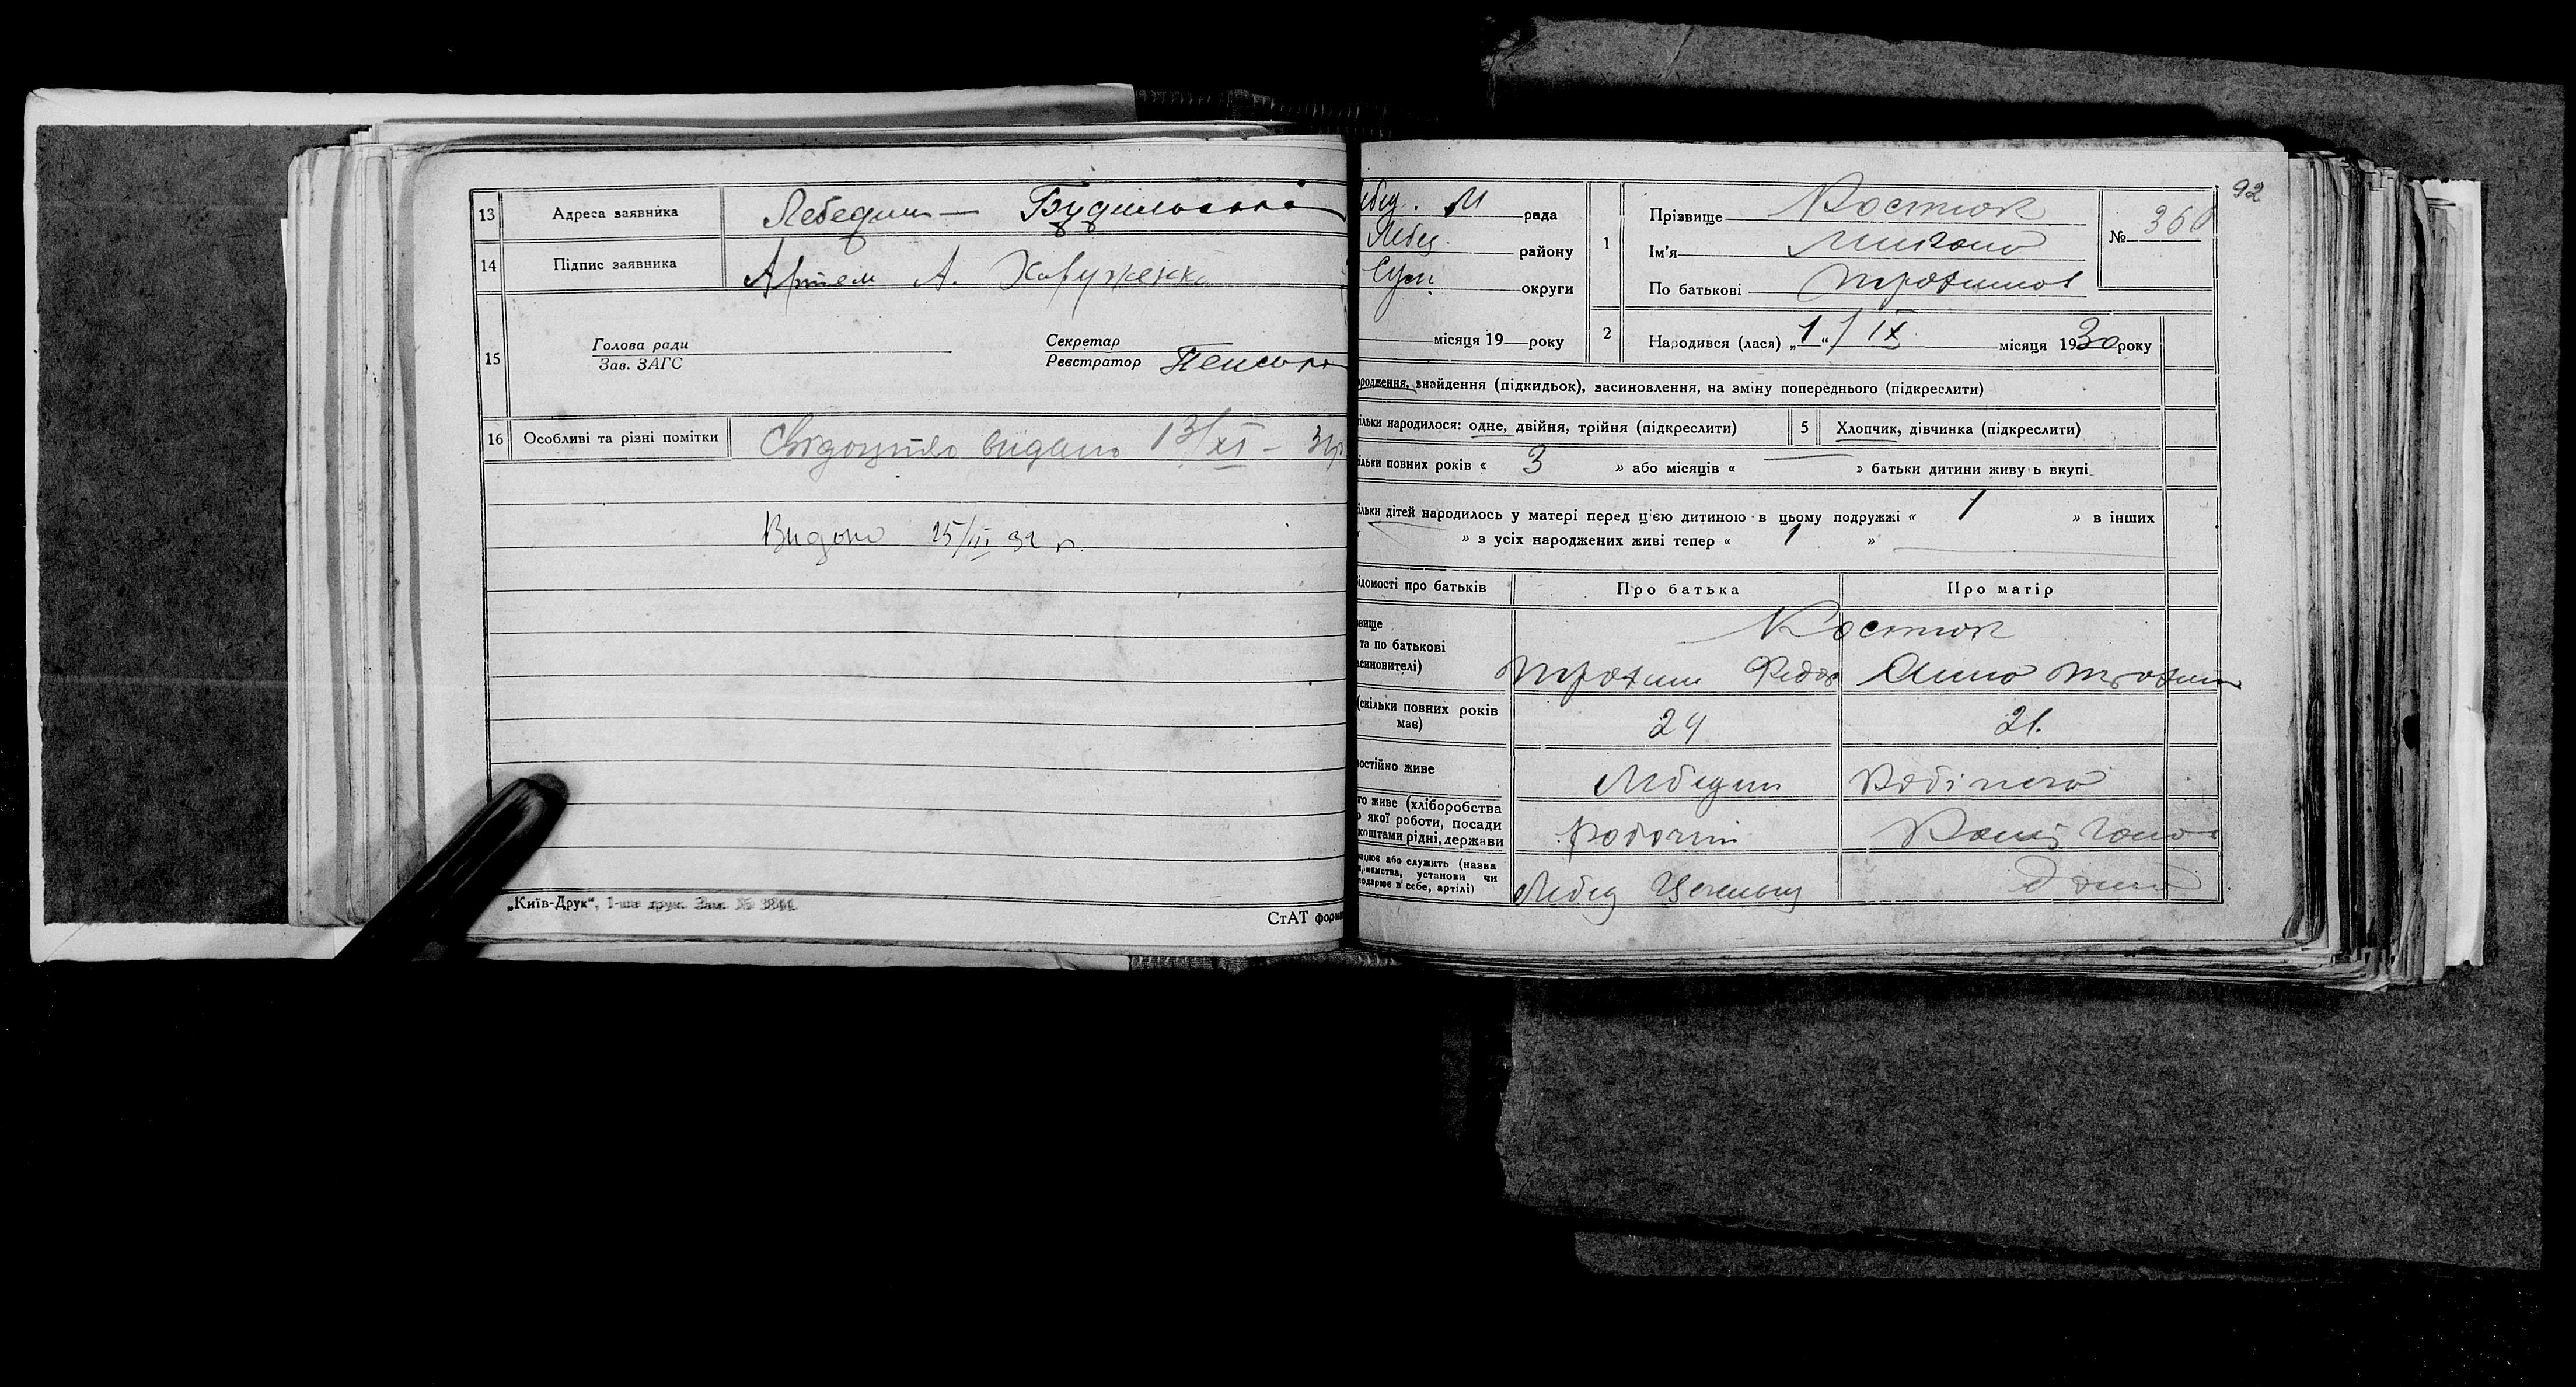 13 Адреса заявника Лебедин —
14 Підпис заявника Артем А.
15 Голова ради
Зав. ЗАГС
Секретар
Реєстратор
16 Особливі та різні помітки Свідоцтво видано 13/XI –
Видано 25/III 32 р.
„Київ-Друк“, 1-ша друк. Зам. № 3844
СтАТ форма
92
М рада
Лебед. району
Сум округи
місяця 19 року
1 Прізвище Костюк
Ім'я Микола
По батькові Трохимов
№ 360
2 Народився (лася) „1“ / IX місяця 1930 року
родження, знайдення (підкидьок), засиновлення, на зміну попереднього (підкреслити)
ільки народилося: одне, двійня, трійня (підкреслити)
5 Хлопчик, дівчинка (підкреслити)
ільки повних років « 3 » або місяців « — » батьки дитини живуть вкупі
ільки дітей народилось у матері перед цією дитиною в цьому подружжі « 1 » в інших
» з усіх народжених живі тепер « 1 »
ідомості про батьків Про батька Про матір
вище
та по батькові
асиновителі)
Костюк
Трохим Федор Анна Трохим
(скільки повних років
має)
24 21.
постійно живе Лебедин
го живе (хліборобства
о якої роботи, посади
коштами рідні, держави
Робочий
ацює або служить (назва
установи чи
подарює в себе, артілі)
Лебед